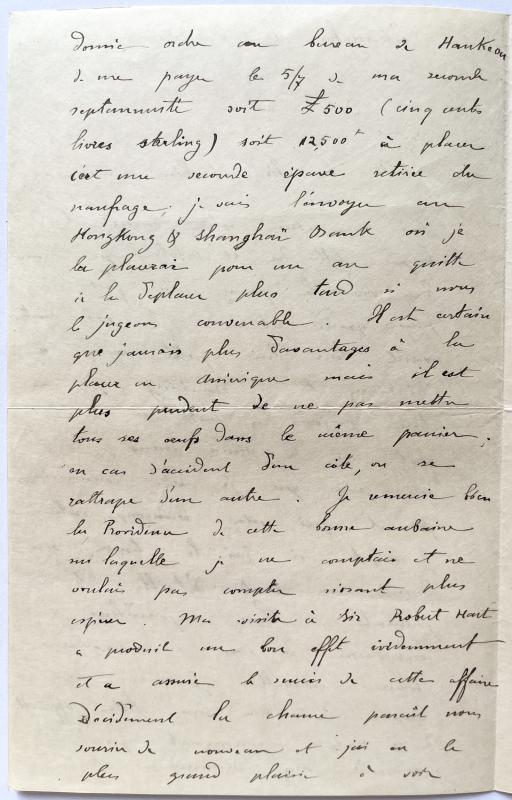 donné ordre au bureau de Hankeou
de me payer les 5/7 de ma seconde
septennuité soit £500 (cinq cents
livres sterling) soit 12,500 f à placer
c'est une seconde épave retirée du
naufrage; je vais l'envoyer au
HongKong & Shanghaï Bank où je
la placerai pour un an quitte
à la déplacer plus tard si nous
le jugeons convenable. Il est certain
que j'aurais plus d'avantages à la
placer en Amérique mais il est
plus prudent de ne pas mettre
tous ses oeufs dans le même panier;
en cas d'accident d'un côté, on se
rattrape d'un autre. Je remercie bien
la Providence de cette bonne aubaine
sur laquelle je ne comptais et ne
voulais pas compter n'osant plus
espérer. Ma visite à Sir Robert Hart
a produit un bon effet évidemment
et a assuré le succès de cette affaire
Décidément la chance paraît nous
sourire de nouveau et j'ai eu le
plus grand plaisir à voir